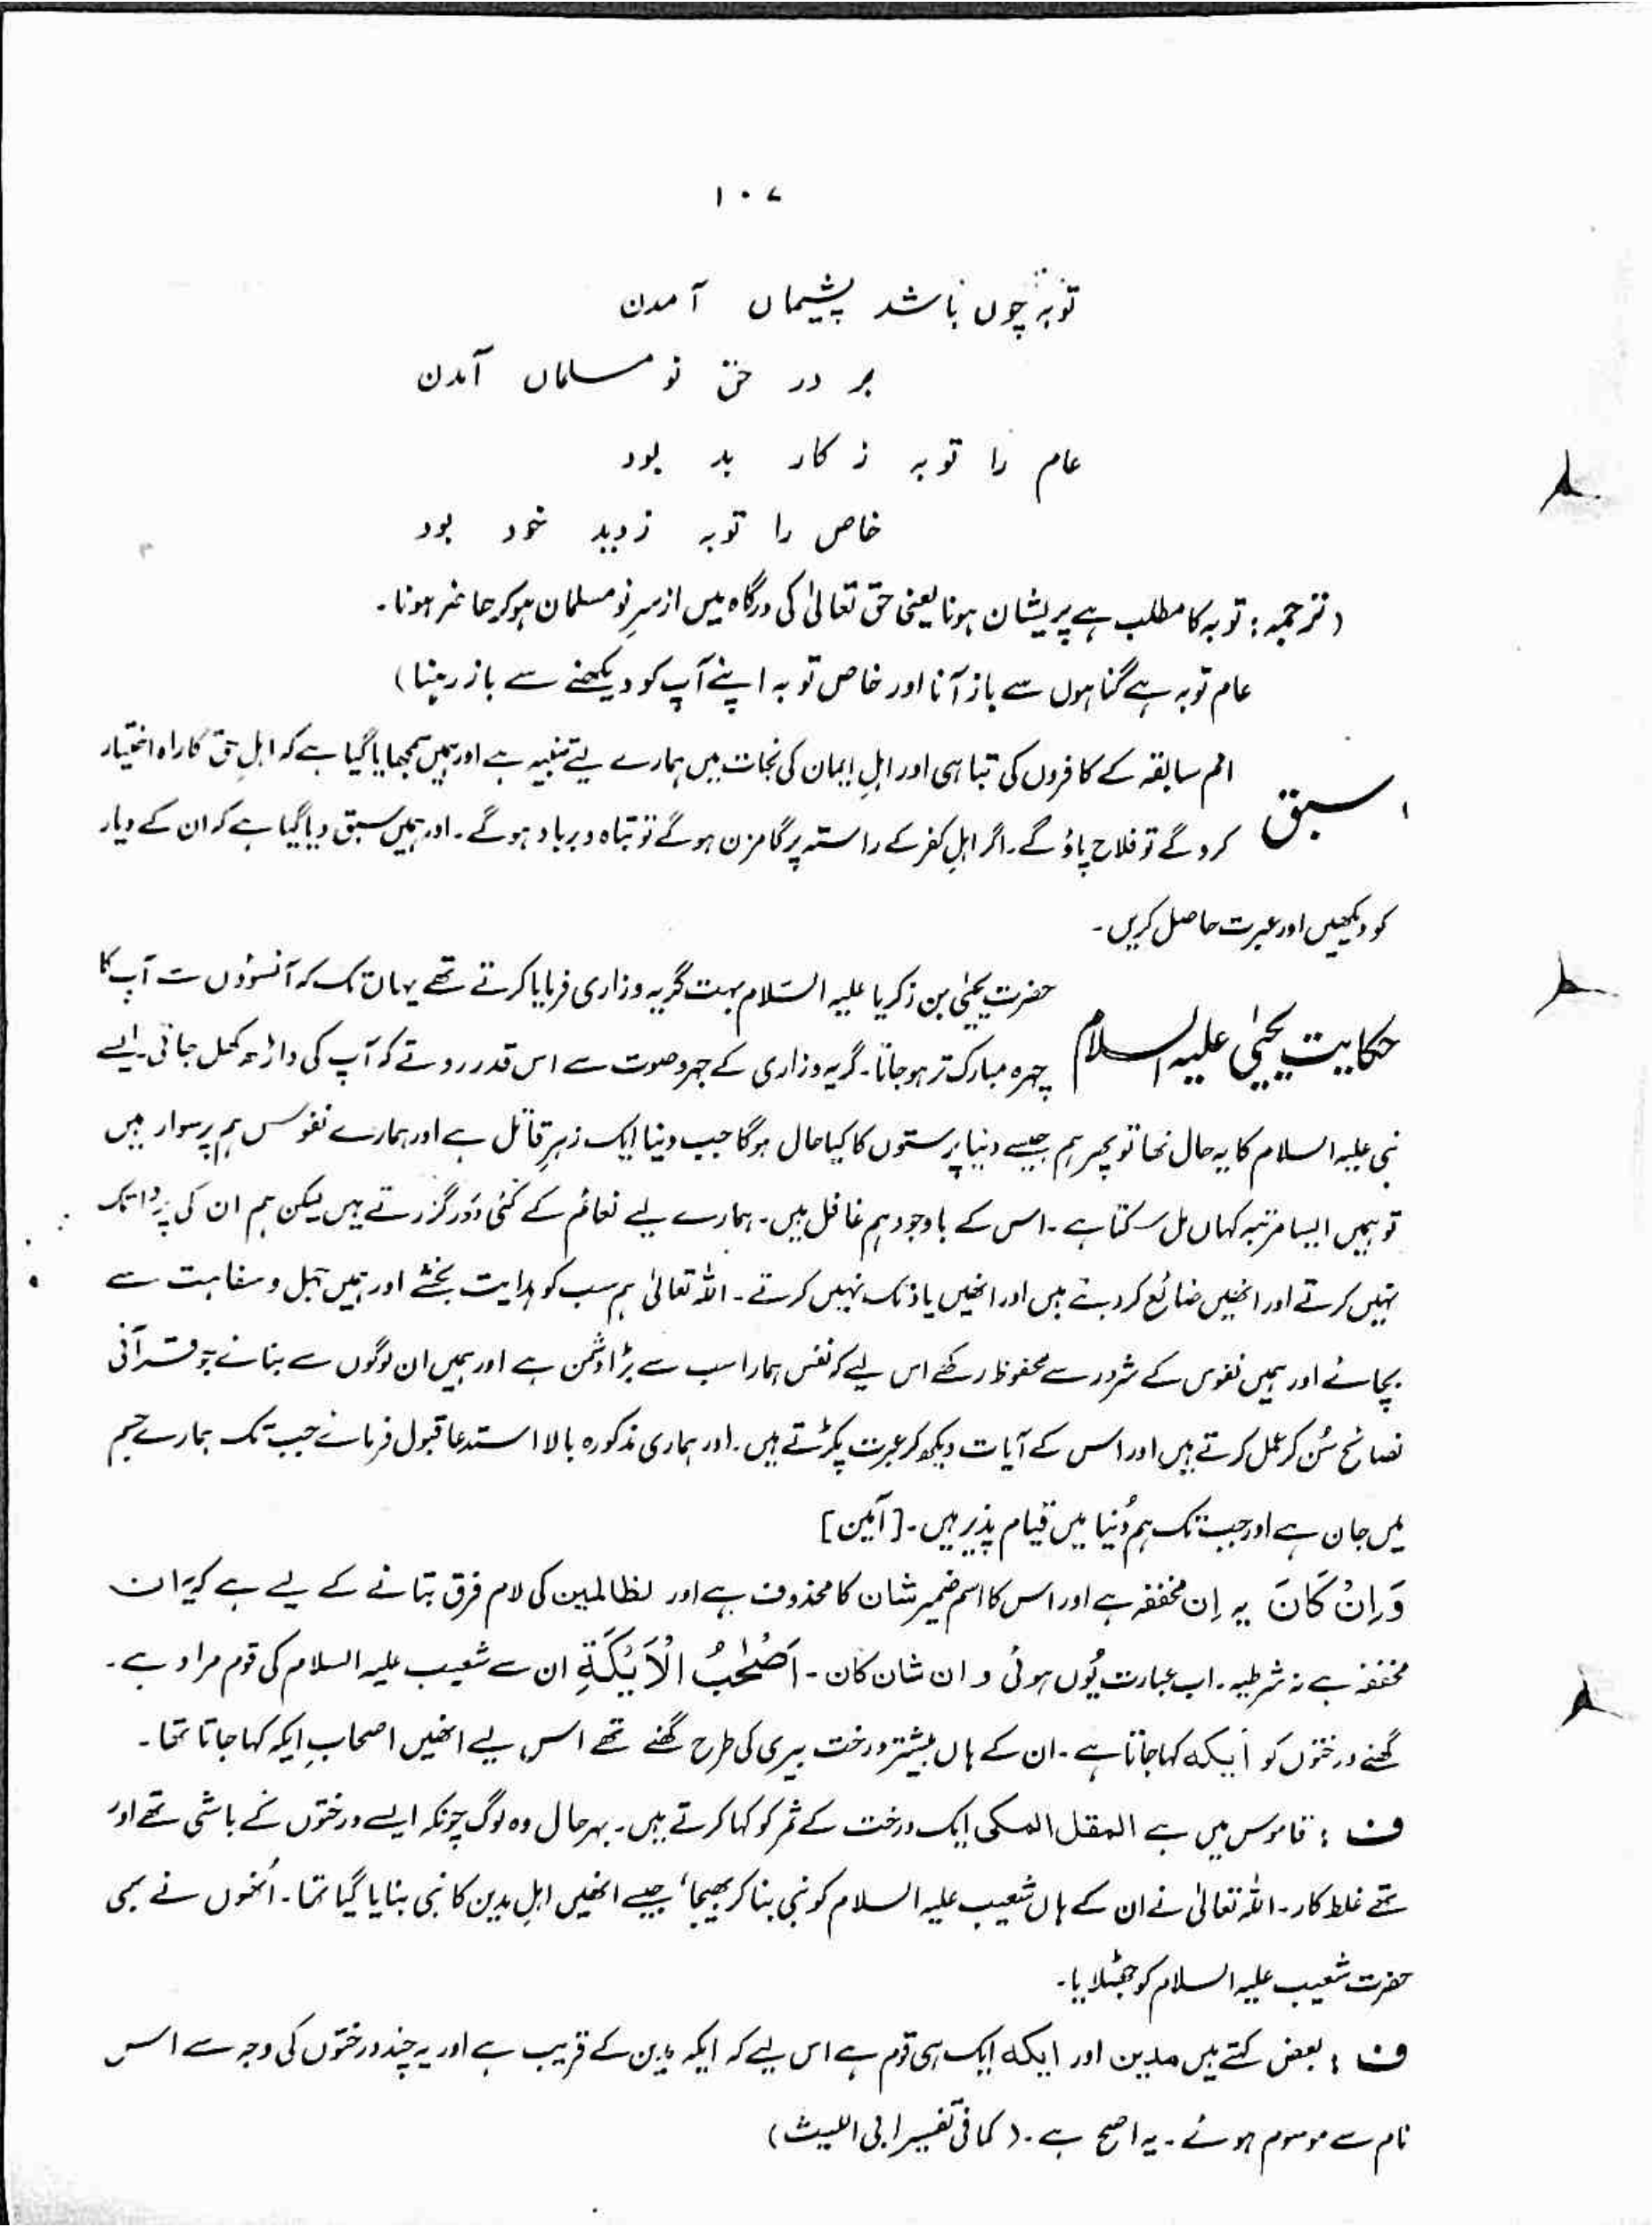 ۱۰۷
توبہ چوں باشد پشیماں آمدن
بر در حق نو مسلماں آمدن
عام را توبہ ز کار بد بود
خاص را توبہ ز دید خود بود
(ترجمہ : توبہ کا مطلب ہے پریشان ہونا یعنی حق تعالیٰ کی درگاہ میں از سرِ نو مسلمان ہو کر حاضر ہونا۔
عام توبہ ہے گناہوں سے باز آنا اور خاص توبہ اپنے آپ کو دیکھنے سے باز رہنا)
سبق امم سابقہ کے کافروں کی تباہی اور اہلِ ایمان کی نجات میں ہمارے لیے تنبیہ ہے اور ہمیں سمجھایا گیا ہے کہ اہلِ حق کا راہ اختیار
کرو گے تو فلاح پاؤ گے۔ اگر اہلِ کفر کے راستہ پر گامزن ہو گے تو تباہ و برباد ہو گے۔ اور ہمیں سبق دیا گیا ہے کہ ان کے دیار
کو دیکھیں اور عبرت حاصل کریں۔
حکایت یحییٰ علیہ السلام حضرت یحییٰ بن زکریا علیہ السلام بہت گریہ و زاری فرمایا کرتے تھے یہاں تک کہ آنسوؤں سے آپ کا
چہرہ مبارک تر ہو جاتا۔ گریہ و زاری کے جہر و صوت سے اس قدر روتے کہ آپ کی داڑھ کھل جاتی۔ ایسے
نبی علیہ السلام کا یہ حال تھا تو پھر ہم جیسے دنیا پرستوں کا کیا حال ہوگا جب دنیا ایک زہرِ قاتل ہے اور ہمارے نفوس ہم پر سوار ہیں
تو ہمیں ایسا مرتبہ کہاں مل سکتا ہے۔ اس کے باوجود ہم غافل ہیں۔ ہمارے لیے نعائم کے کئی دَور گزرتے ہیں لیکن ہم ان کی پروا تک
نہیں کرتے اور انھیں ضائع کر دیتے ہیں اور انھیں یاد تک نہیں کرتے۔ اللہ تعالیٰ ہم سب کو ہدایت بخشے اور ہمیں جہل و سفاہت سے
بچائے اور ہمیں نفوس کے شرور سے محفوظ رکھے اس لیے کہ نفس ہمارا سب سے بڑا دشمن ہے اور ہمیں ان لوگوں سے بنائے جو قرآنی
نصائح سُن کر عمل کرتے ہیں اور اس کے آیات دیکھ کر عبرت پکڑتے ہیں۔ اور ہماری مذکورہ بالا استدعا قبول فرمائے جب تک ہمارے جسم
میں جان ہے اور جب تک ہم دُنیا میں قیام پذیر ہیں۔ [آمین]
وَاِنْ كَانَ یہ اِن مخففہ ہے اور اس کا اسم ضمیر شان کا محذوف ہے اور لظالمین کی لام فرق بتانے کے لیے ہے کہ یہ ان
مخففہ ہے نہ شرطیہ۔ اب عبارت یُوں ہوئی و ان شان کان۔ اَصْحٰبُ الْاَیْكَةِ ان سے شعیب علیہ السلام کی قوم مراد ہے۔
گھنے درختوں کو اَیکہ کہا جاتا ہے۔ ان کے ہاں بیشتر درخت بیری کی طرح گھنے تھے اس لیے انھیں اصحابِ ایکہ کہا جاتا تھا۔
ف : قاموس میں ہے المقل المکی ایک درخت کے ثمر کو کہا کرتے ہیں۔ بہرحال وہ لوگ چونکہ ایسے درختوں کے باشی تھے اور
تھے غلط کار۔ اللہ تعالیٰ نے ان کے ہاں شعیب علیہ السلام کو نبی بنا کر بھیجا، جیسے انھیں اہلِ مدین کا نبی بنایا گیا تھا۔ اُنھوں نے بھی
حضرت شعیب علیہ السلام کو جھٹلایا۔
ف : بعض کہتے ہیں مدین اور ایکہ ایک ہی قوم ہے اس لیے کہ ایکہ مدین کے قریب ہے اور یہ چند درختوں کی وجہ سے اس
نام سے موسوم ہوئے۔ یہ اصح ہے۔ (کما فی تفسیر ابی اللیث)